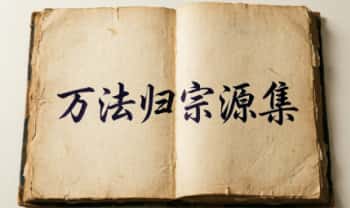 万法归宗源集